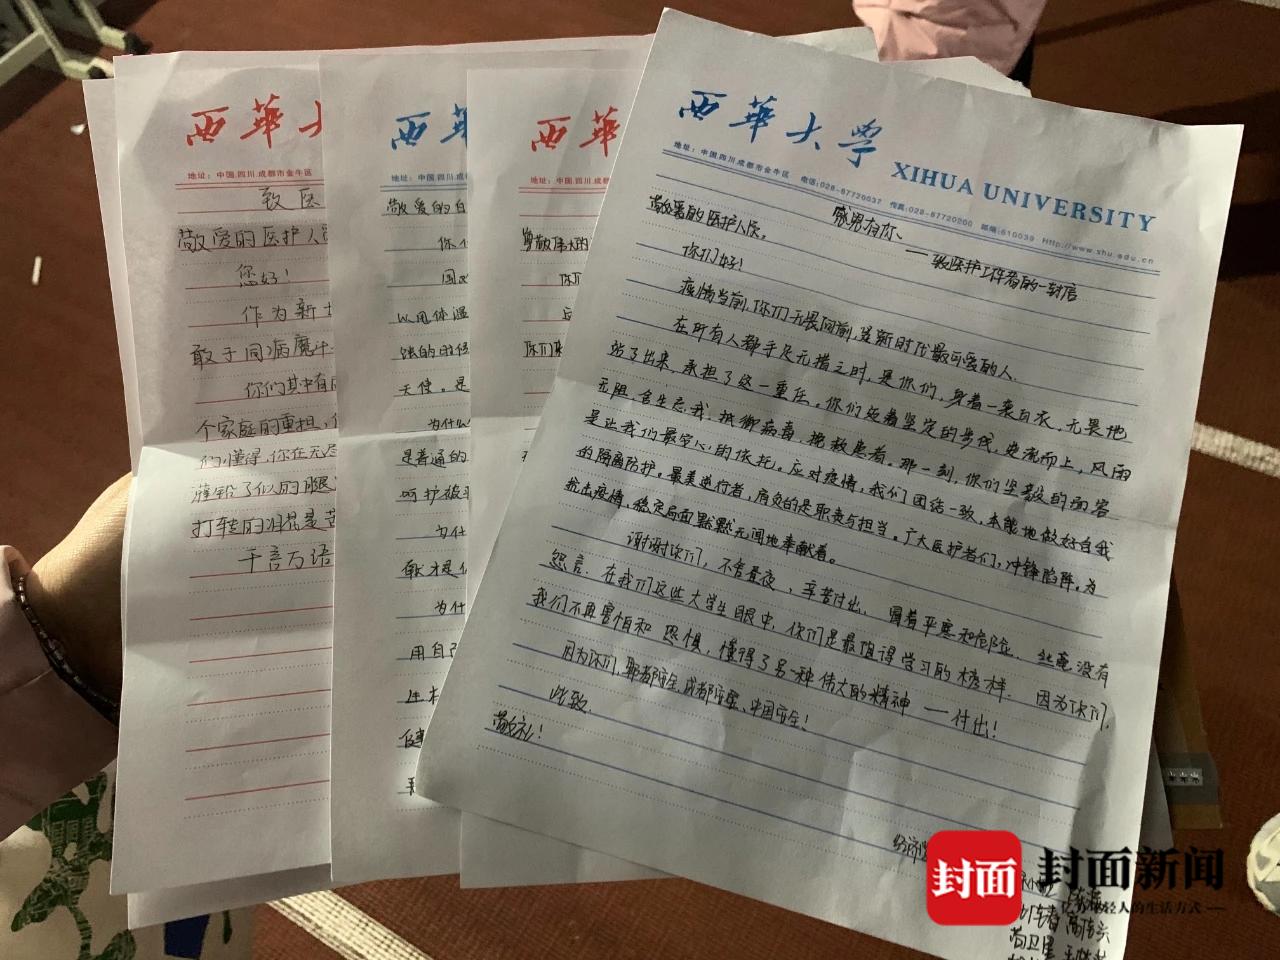 西華大
地址：中国.四川.成都市金牛区
致医
敬爱的医护人员
您好！
作为新
敢于同病魔斗
你们其中有
个家庭的重担，
们懂得，你在无尽
灌铅了似的腿
打转的泪花是苦
千言万语
西華
地址：中国.四川.成都
敬爱的白
你
国
以凡体温
蚀的时候
天使。是
为什么
是普通的
呵护被
为什
献才是
为什
用自己
生
健
西華
地址：中国.四川.成都
尊敬伟大的
你们
你们
西華大学 XIHUA UNIVERSITY
地址：中国.四川.成都市金牛区 电话:028-87720037 传真:028-87720200 邮编:610039 Http://www.xhu.edu.cn
感恩有你、
——致医护工作者的一封信
敬爱的医护人员，
你们好！
疫情当前，你们无畏向前，是新时代最可爱的人.
在所有人都手足无措之时，是你们，身着一袭白衣，无畏地
站了出来，承担了这一重任。你们迈着坚定的步伐，逆流而上，风雨
无阻，舍生忘我，抵御病毒，挽救患者。那一刻，你们坚毅的面容
是让我们最安心的依托。应对疫情，我们团结一致，本能地做好自我
的隔离防护。最美逆行者，肩负的是职责与担当。广大医护者们，冲锋陷阵，为
抗击疫情，稳定局面默默无闻地奉献着。
谢谢你们，不舍昼夜、辛苦付出、冒着严寒和危险、丝毫没有
怨言.在我们这些大学生眼中，你们是最值得学习的榜样.因为你们，
我们不再害怕和恐惧，懂得了另一种伟大的精神——付出！
因为你们，郫都平安、成都平安、中国平安！
此致.
敬礼！
经济
封面
封面新闻
亿万年轻人的生活方式